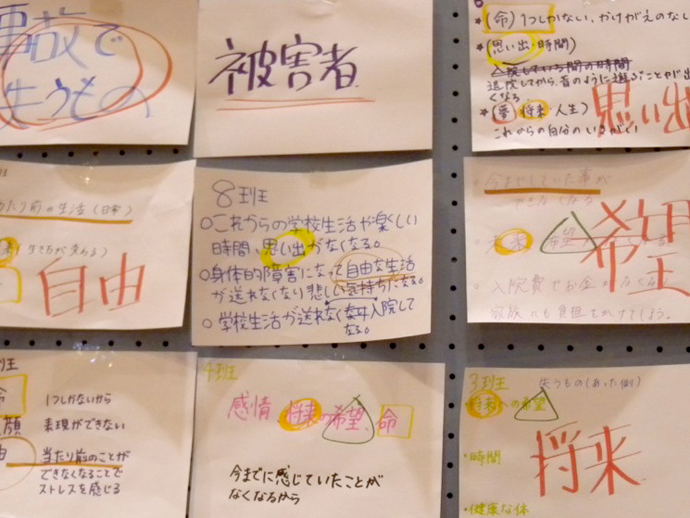 事故で
失うもの
被害者
(命) 1つしかない、かけがえのなし
(思い出・時間)
退院してから、昔のように遊ぶことが出
くなる
(夢・将来・人生)
これからの自分の
思い出
たり前の生活(日常)
自由
8班
○これからの学校生活が楽しい
時間、思い出がなくなる。
○身体的障害になって自由な生活
が送れなくなり悲しい気持ちになる。
○学校生活が送れなく
入院して
なる。
・今までしていた事が
できなくなる
・未来 希望
希望
・入院費でお金がなくなる
家族にも負担をかけてしまう。
班
命 1つしかないから
顔 表現ができない
由 当たり前のことが
できなくなることで
ストレスを感じる
4班
感情 将来の希望、命
今までに感じていたことが
なくなるから
3班 失うもの(あった側)
将来への希望
・時間
将来
・健康な体